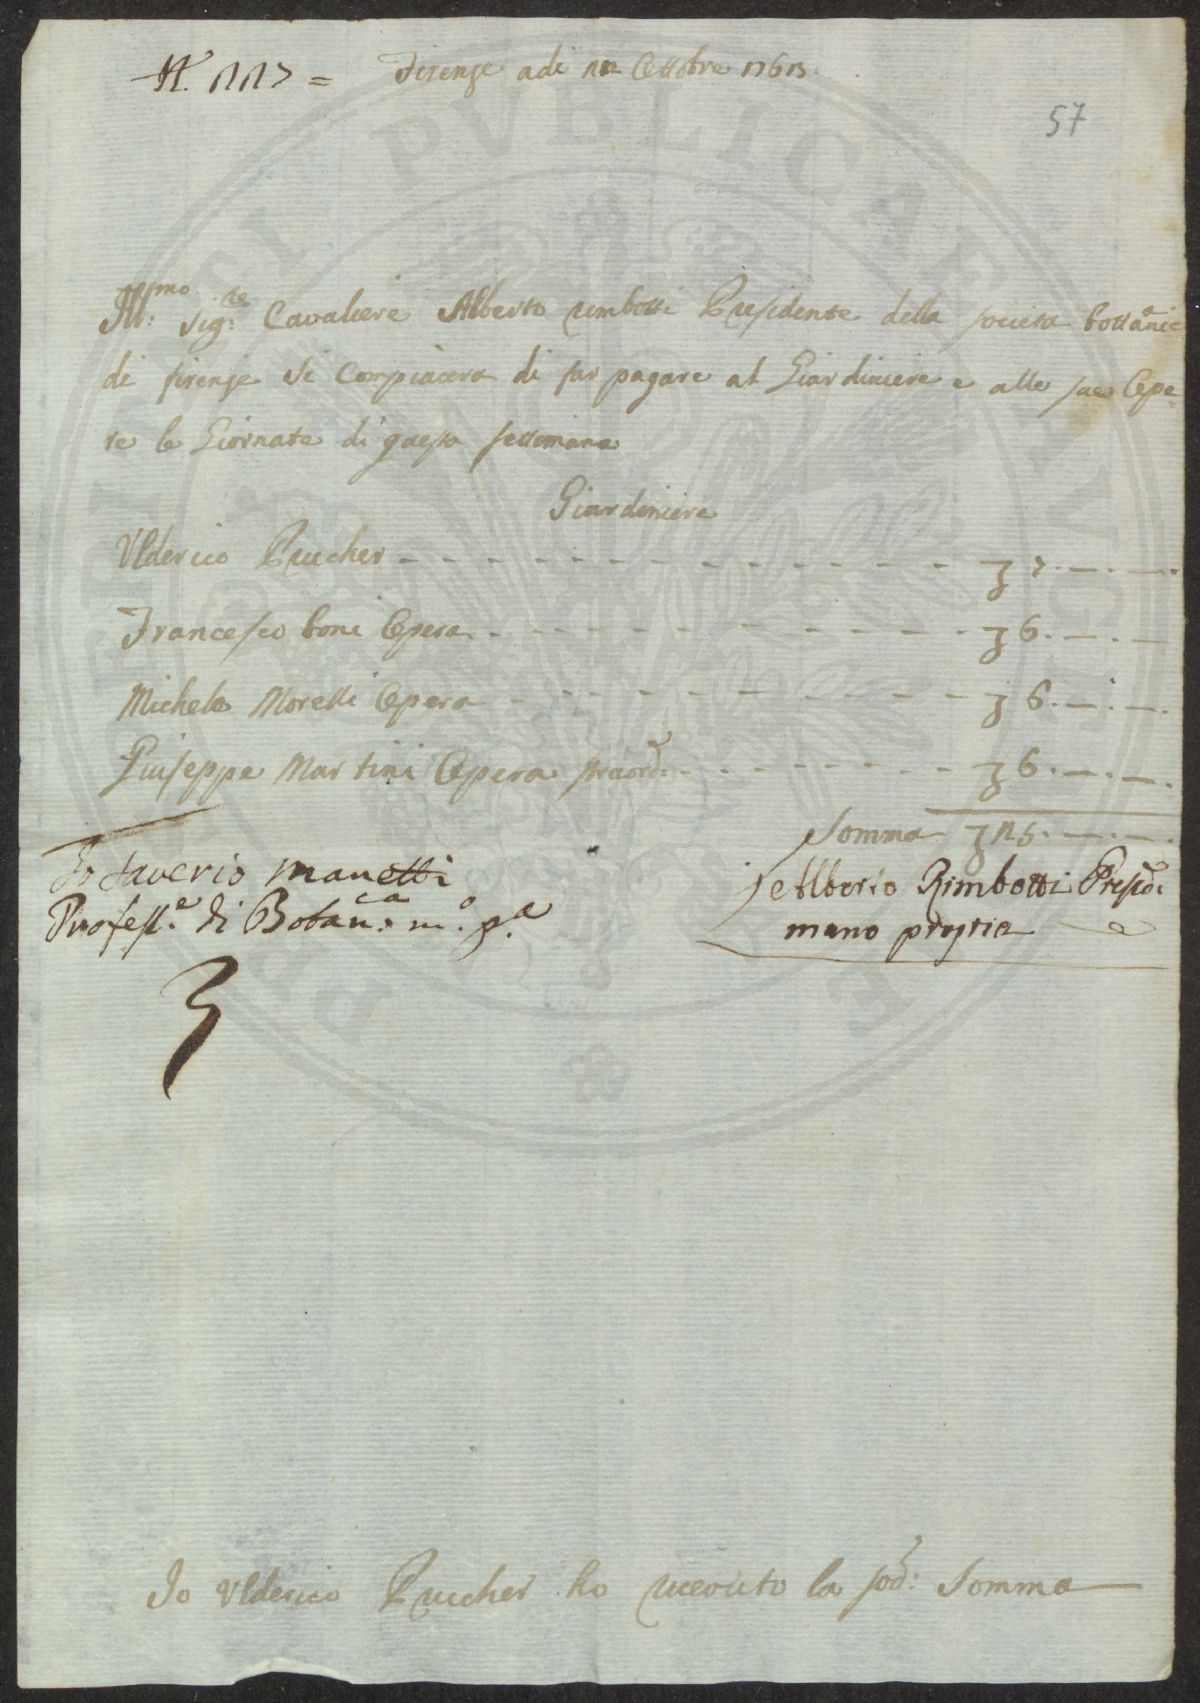 N. 117 =
Firenze adi 12 Ottobre 1765.
57
Ill:mo Sig:re Cavaliere Alberto rimbotti Presidente della societa bottanic
di firenze si Compiacera di far pagare al Giardiniere e alle sue Ope-
re le Giornate di questa settimana
Giardiniere
Ulderico Prucher - - - - - - - - - - - - - 7. — . —
Francesco boni Opera - - - - - - - - - - - 6. — . —
Michele Morelli Opera - - - - - - - - - - 6. — . —
Giuseppe Martini Opera straord: - - - - - - - - 6. — . —
Somma 25. — . —
Io Saverio Manetti
Profess:e di Botan:ca m:o p:a
Alberto Rimbotti Presid:e
mano propria
Io Ulderico Prucher ho riceuto la sod: Somma